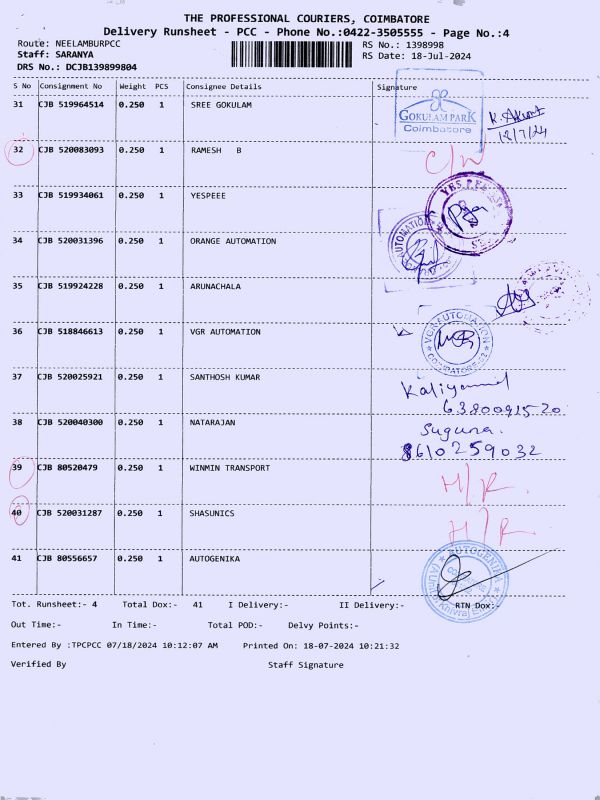 THE PROFESSIONAL COURIERS, COIMBATORE
Delivery Runsheet - PCC - Phone No.:0422-3505555 - Page No.:4
Route: NEELAMBURPCC
RS No.: 1398998
Staff: SARANYA
RS Date: 18-Jul-2024
DRS No.: DCJB139899804
S No Consignment No Weight PCS Consignee Details Signature
31 CJB 519964514 0.250 1 SREE GOKULAM
GOKULAM PARK
Coimbatore
12/7/24
32 CJB 520083093 0.250 1 RAMESH B
33 CJB 519934061 0.250 1 YESPEEE
34 CJB 520031396 0.250 1 ORANGE AUTOMATION
AUTOMATION
35 CJB 519924228 0.250 1 ARUNACHALA
36 CJB 518846613 0.250 1 VGR AUTOMATION
VGR AUTOMATION
37 CJB 520025921 0.250 1 SANTHOSH KUMAR
6380091520
38 CJB 520040300 0.250 1 NATARAJAN
Suguna.
8610259032
39 CJB 80520479 0.250 1 WINMIN TRANSPORT
H/R.
40 CJB 520031287 0.250 1 SHASUNICS
H/R.
41 CJB 80556657 0.250 1 AUTOGENIKA
AUTOGENIKA
Tot. Runsheet:- 4 Total Dox:- 41 I Delivery:- II Delivery:- RTN Dox:-
Out Time:- In Time:- Total POD:- Delvy Points:-
Entered By :TPCPCC 07/18/2024 10:12:07 AM Printed On: 18-07-2024 10:21:32
Verified By Staff Signature